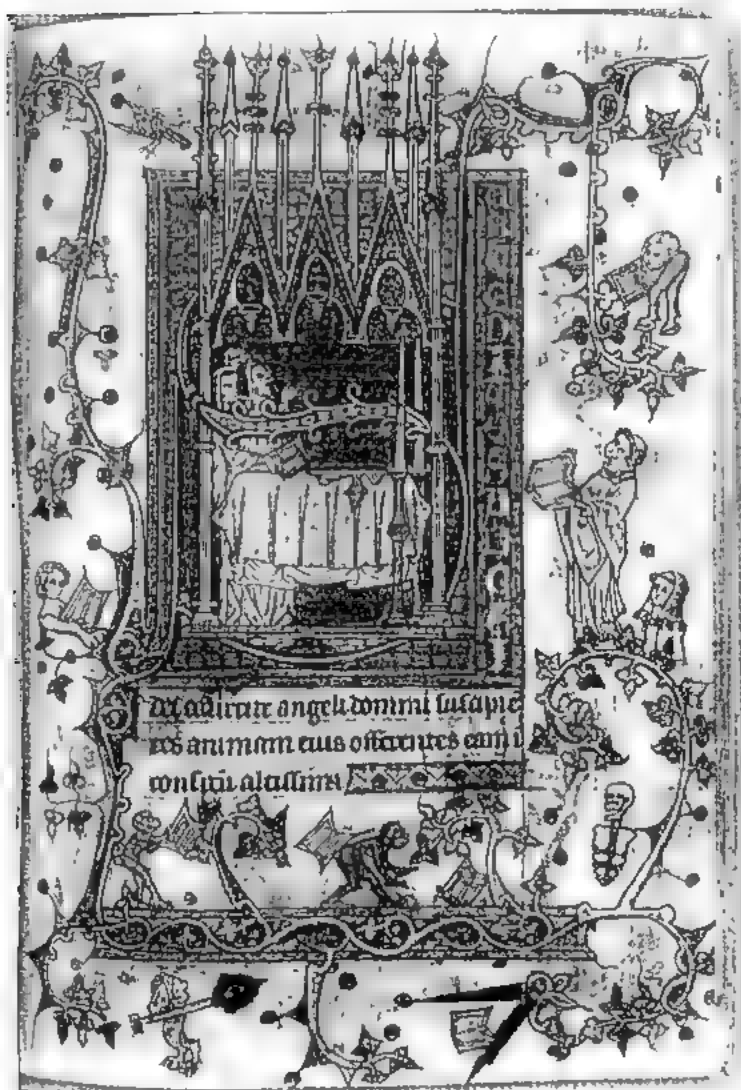 dei occurrite angeli domini suscipie
tes animam eius offerentes eam i
conspectu altissimi